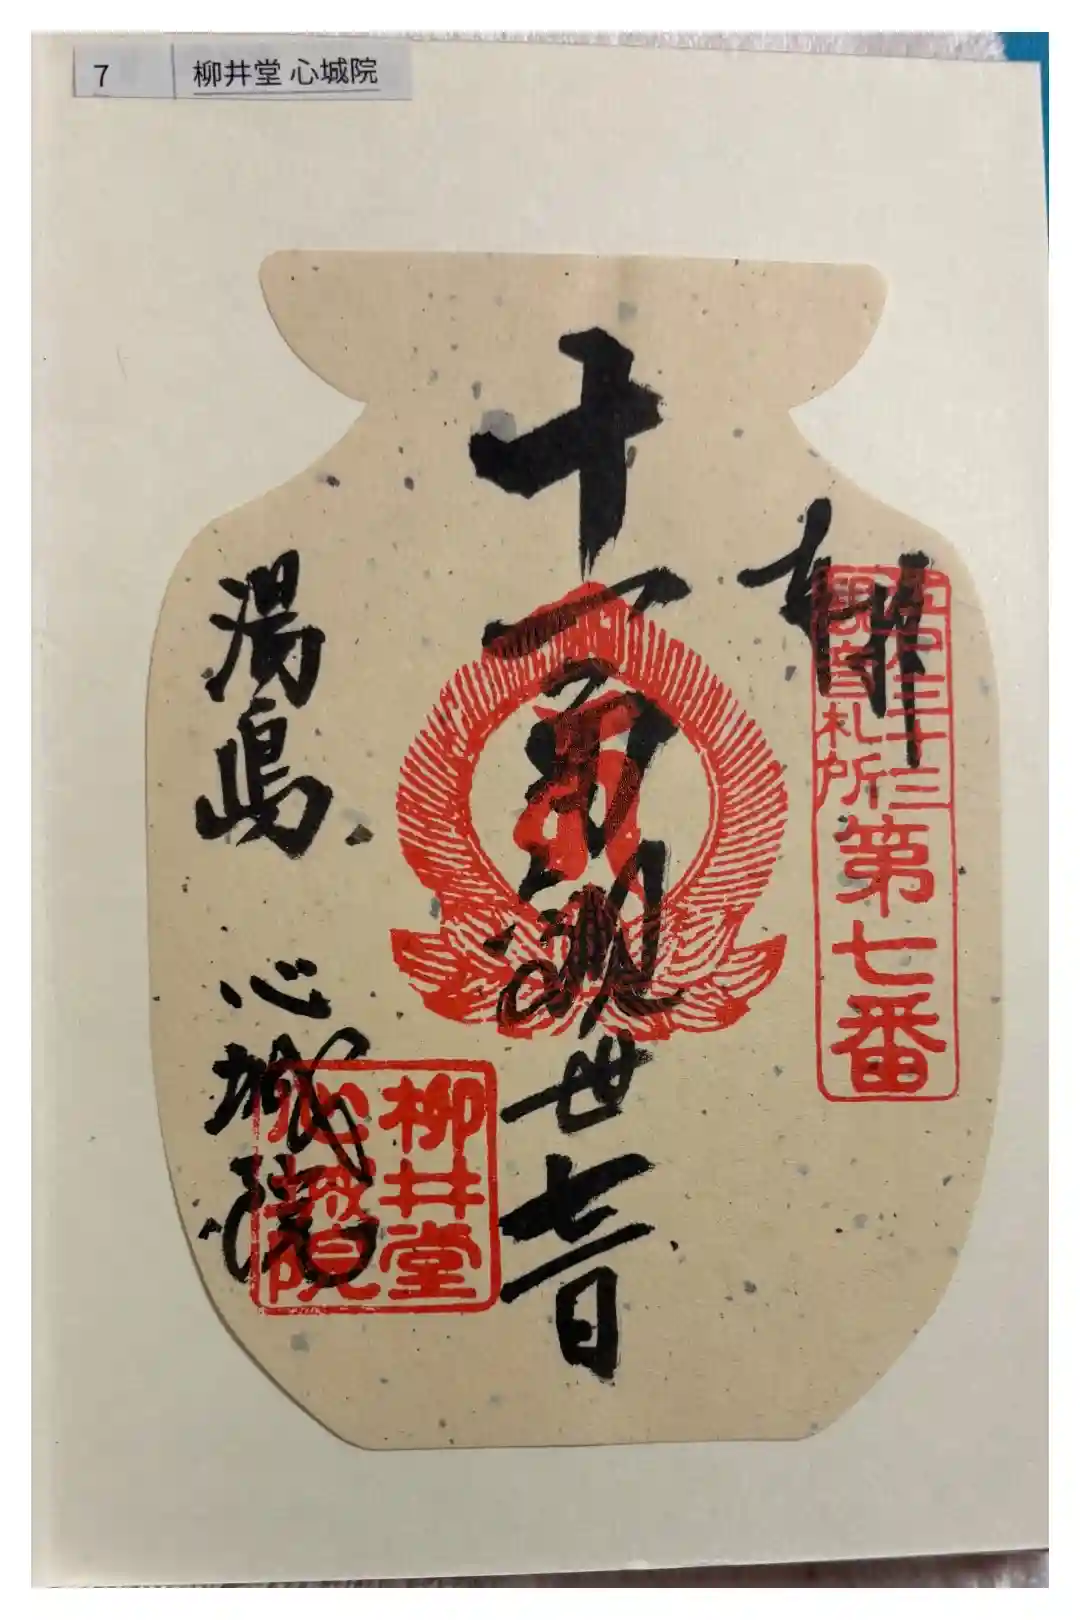 7 柳井堂 心城院
拝
江戸三十三
観音札所
第七番
十一面観世音
湯嶋 心城院
柳井堂
心城院